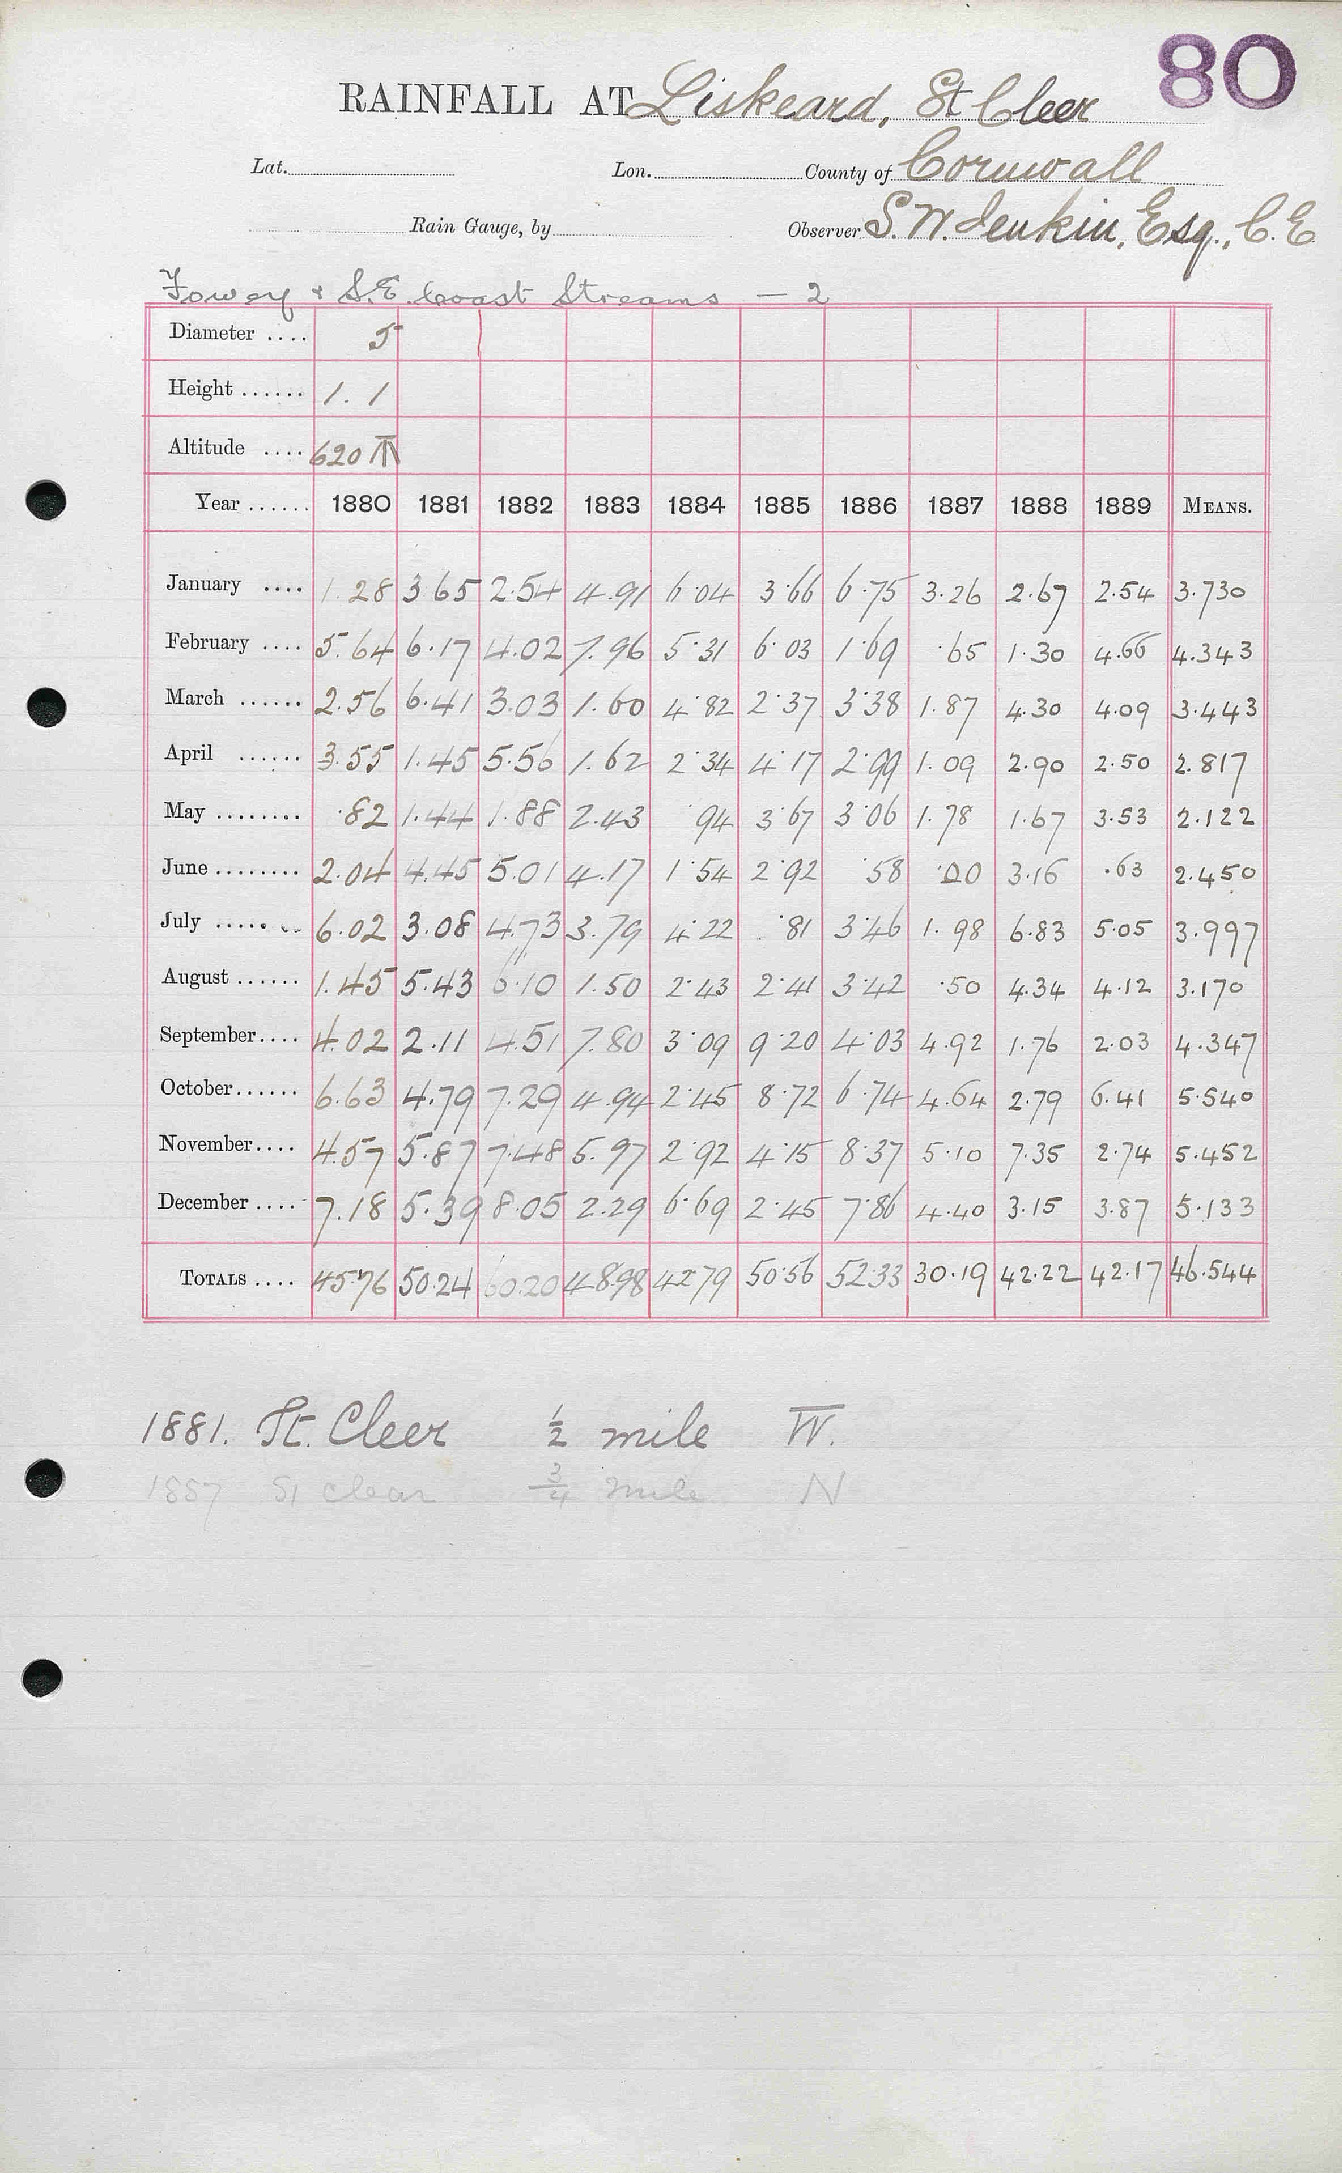 80
RAINFALL AT Liskeard, St Cleer
Lat. Lon. County of Cornwall
Rain Gauge, by Observer S. W. Jenkin, Esq., C.E.
Fowey & S.E. Coast Streams — 2
Diameter .... 5
Height ...... 1.1
Altitude .... 620
Year ...... 1880 1881 1882 1883 1884 1885 1886 1887 1888 1889 MEANS.
January .... 1.28 3.65 2.54 4.91 6.04 3.66 6.75 3.26 2.67 2.54 3.730
February .... 5.64 6.17 4.02 7.96 5.31 6.03 1.69 .65 1.30 4.66 4.343
March ...... 2.56 6.41 3.03 1.60 4.82 2.37 3.38 1.87 4.30 4.09 3.443
April ...... 3.55 1.45 5.56 1.62 2.34 4.17 2.99 1.09 2.90 2.50 2.817
May ........ .82 1.44 1.88 2.43 94 3.67 3.06 1.78 1.67 3.53 2.122
June ........ 2.04 4.45 5.01 4.17 1.54 2.92 .58 .00 3.16 .63 2.450
July ....... 6.02 3.08 4.73 3.79 4.22 .81 3.46 1.98 6.83 5.05 3.997
August ...... 1.45 5.43 6.10 1.50 2.43 2.41 3.42 .50 4.34 4.12 3.170
September.... 4.02 2.11 4.51 7.80 3.09 9.20 4.03 4.92 1.76 2.03 4.347
October...... 6.63 4.79 7.29 4.94 2.45 8.72 6.74 4.64 2.79 6.41 5.540
November.... 4.57 5.87 7.48 5.97 2.92 4.15 8.37 5.10 7.35 2.74 5.452
December .... 7.18 5.39 8.05 2.29 6.69 2.45 7.86 4.40 3.15 3.87 5.133
TOTALS .... 45.76 50.24 60.20 48.98 42.79 50.56 52.33 30.19 42.22 42.17 46.544
1881. St. Cleer 1/2 mile W.
1887 St clear 3/4 mile N